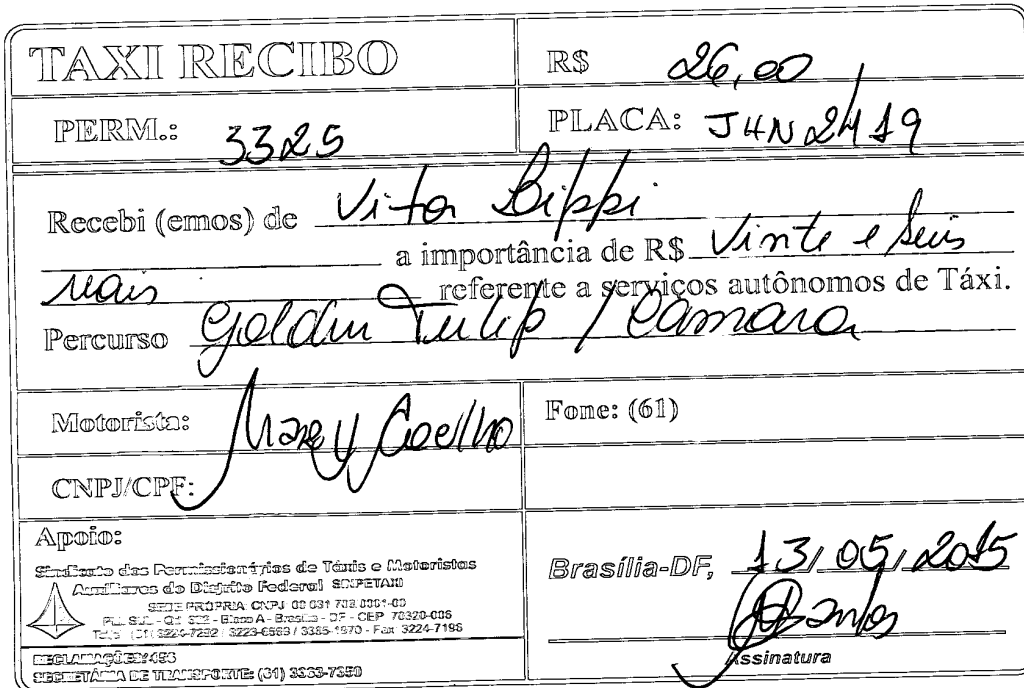 TAXI RECIBO
R$ 26,00
PERM.: 3325
PLACA: JHN 2419
Recebi (emos) de Vitor Bippi
a importância de R$ Vinte e Seis
reais referente a serviços autônomos de Táxi.
Percurso Goldin Tulip / Câmara
Motorista: Coelho
Fone: (61)
CNPJ/CPF:
Apoio:
Sindicato dos Permissionários de Táxis e Motoristas
Auxiliares do Distrito Federal SINPETAXI
SEDE PRÓPRIA: CNPJ
Bloco A - Brasília - DF - CEP 70320-
3224-7292 / 3223- / 3385-1970 - Fax 3224-7196
RECLAMAÇÕES:
SECRETÁRIA DE TRANSPORTE: (61)
Brasília-DF, 13/05/2015
Assinatura